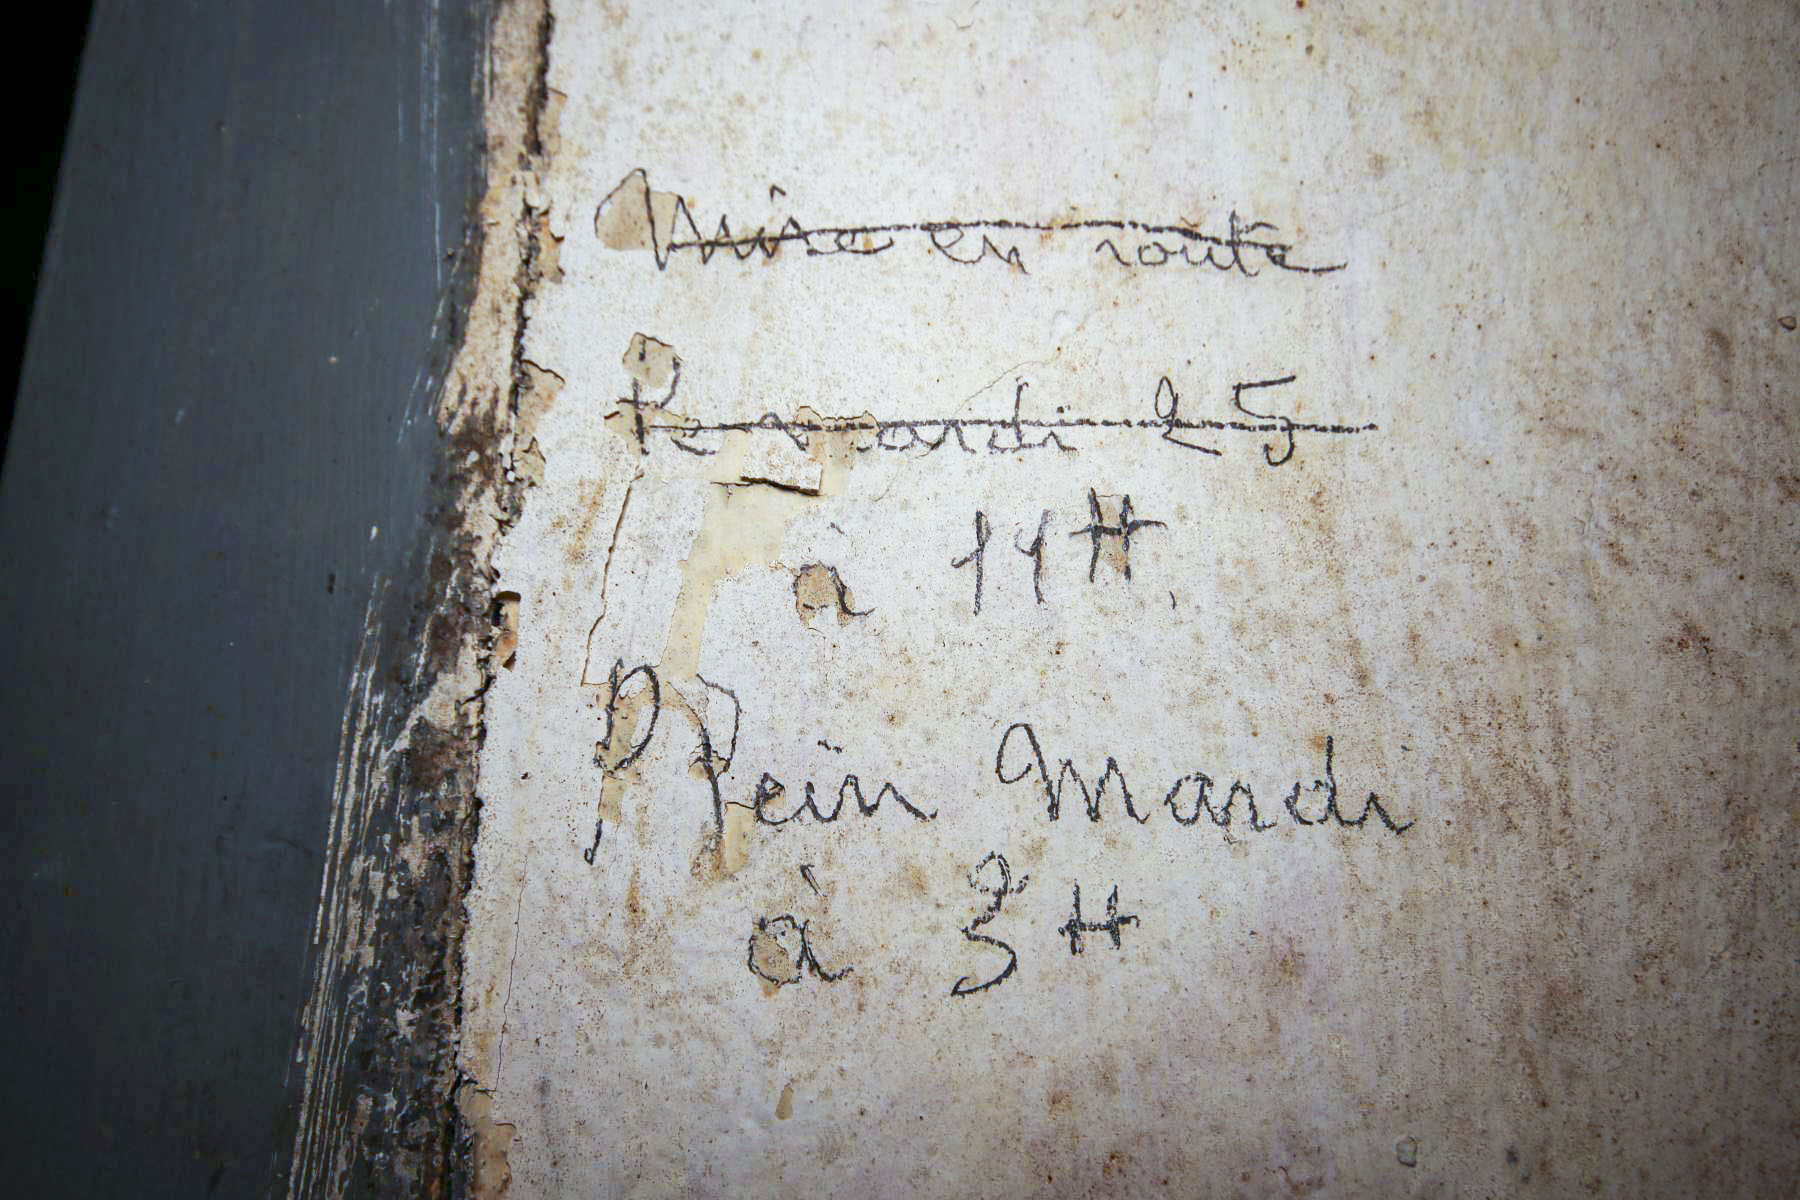 Mise en route
Le mardi 25
à 11H.
Plein Mardi
à 3H